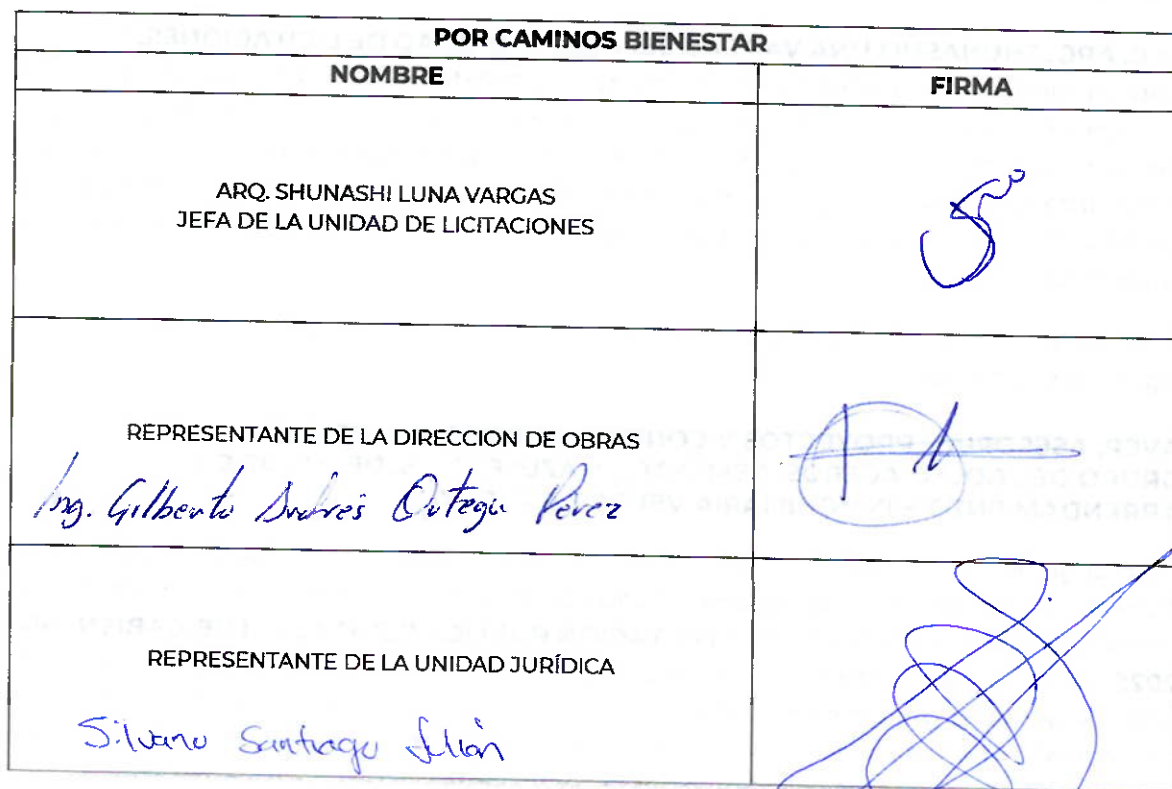 POR CAMINOS BIENESTAR
NOMBRE
FIRMA
ARQ. SHUNASHI LUNA VARGAS
JEFA DE LA UNIDAD DE LICITACIONES
REPRESENTANTE DE LA DIRECCION DE OBRAS
Ing. Gilberto Andrés Ortega Pérez
REPRESENTANTE DE LA UNIDAD JURÍDICA
Silvano Santiago Julián